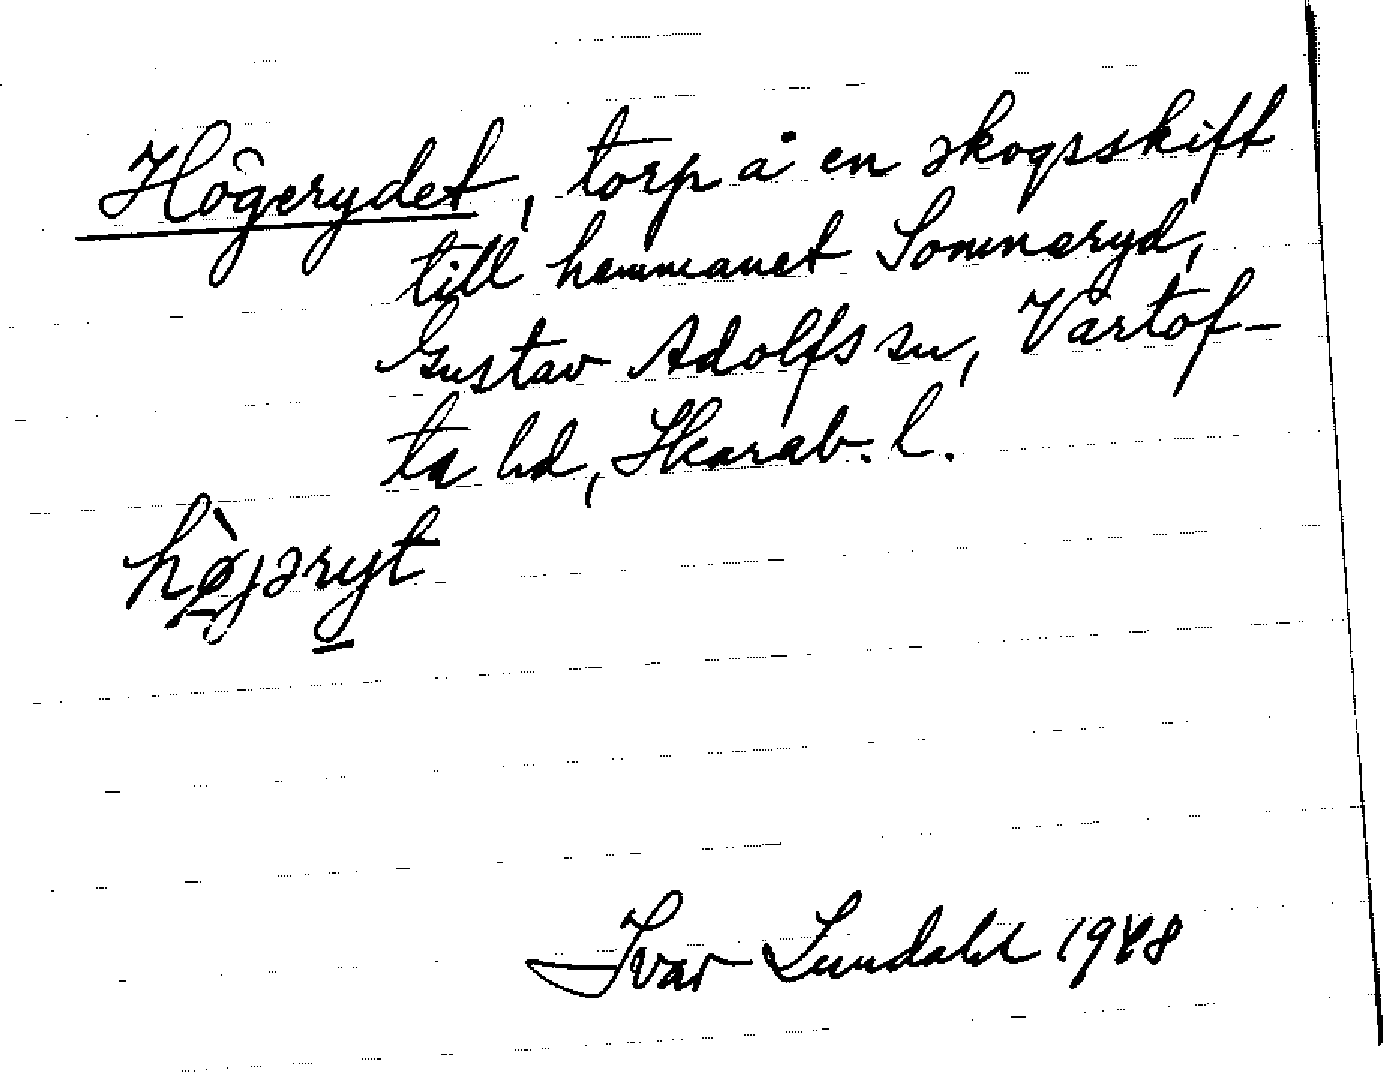 Högerydet, torp å en skogsskift
till hemmanet Sommeryd,
Gustav Adolfs sn, Vartof-
ta hd, Skarab. l.
hø̀jəryt
Ivar Lundahl 1948